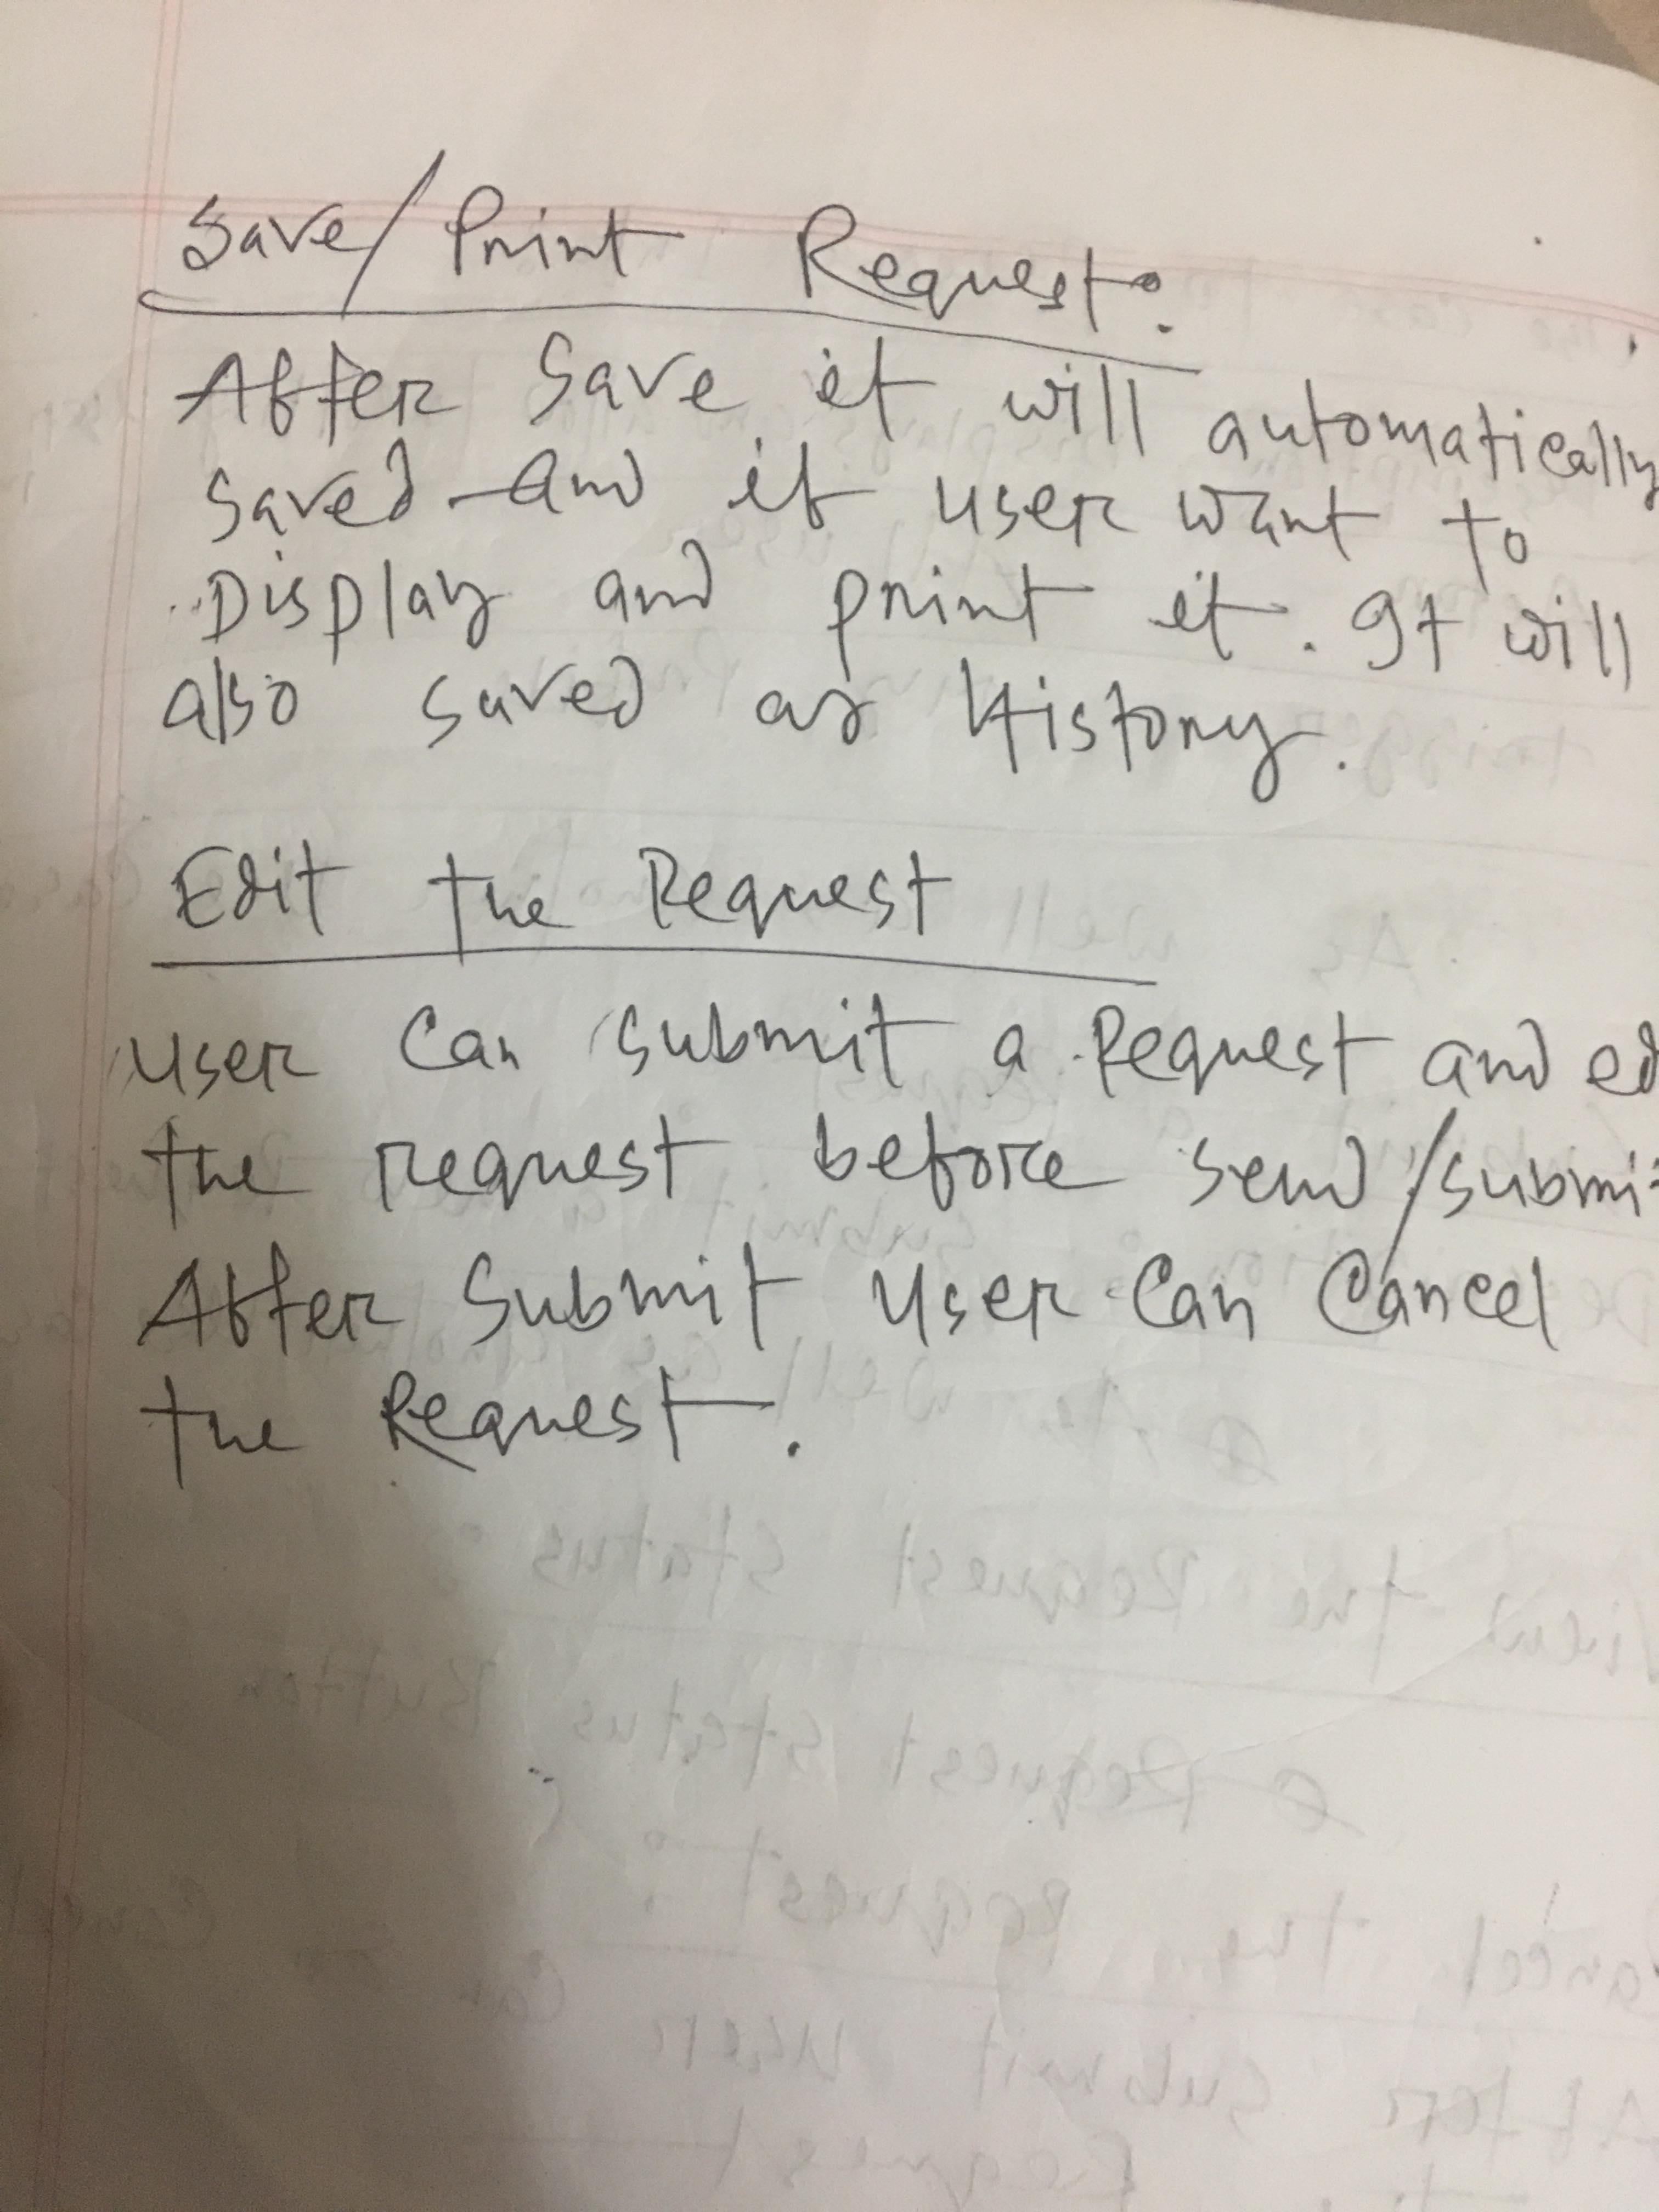 Save/Print Request:
After Save it will automatically
saved and if user want to
Display and print it. It will
also saved as History.
Edit the Request
User Can submit a Request and ed
the request before send/submit
After Submit User Can Cancel
the Request.